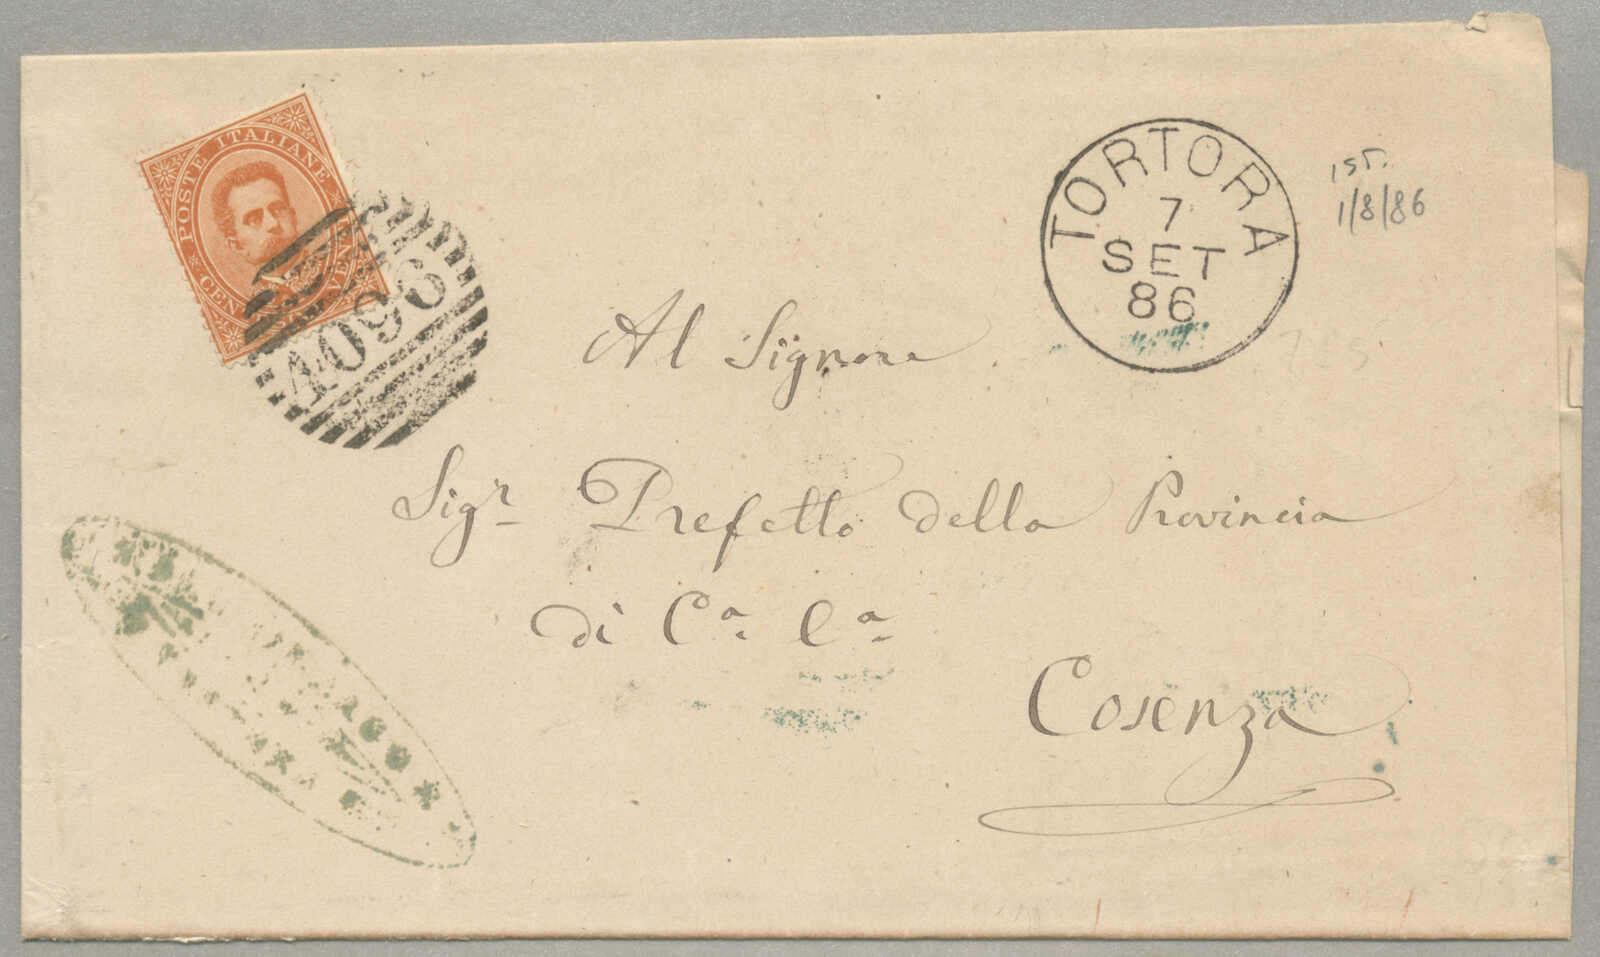 POSTE ITALIANE
CEN VENTI
4096
TORTORA
7
SET
86
IST.
1/8/86
Al Signore
Sigr Prefetto della Provincia
di Ca. Ca
Cosenza